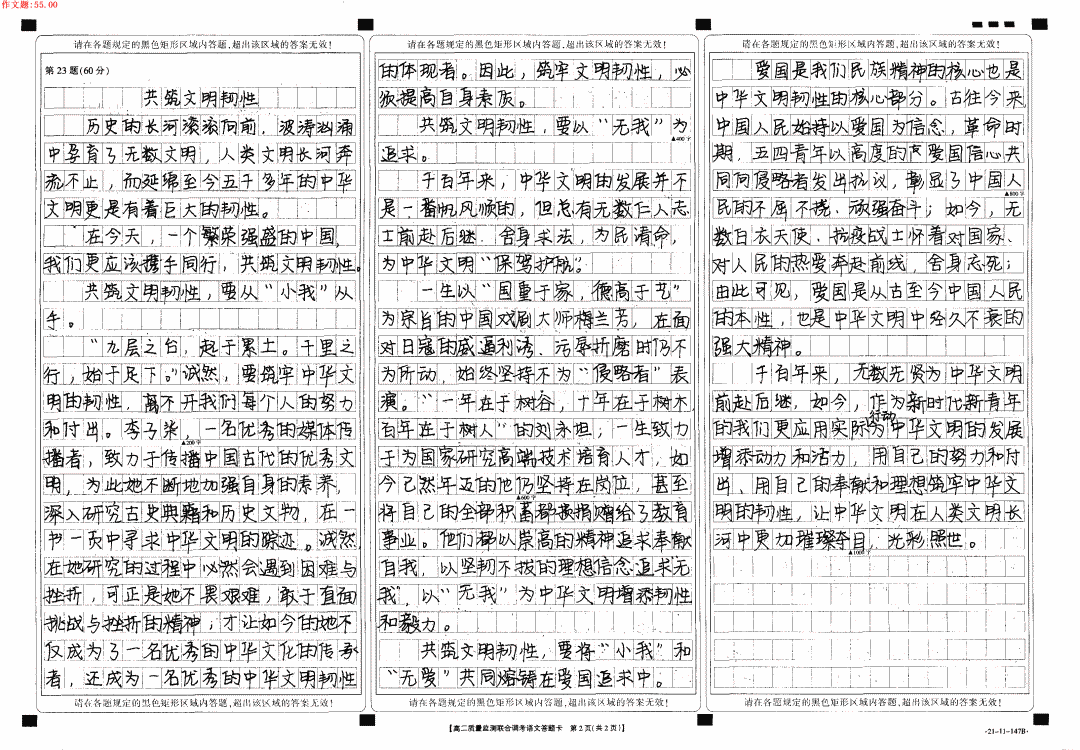 作文题:55.00
请在各题规定的黑色矩形区域内答题,超出该区域的答案无效!
第23题(60分)
共筑文明韧性
历史的长河滚滚向前，波涛汹涌
中孕育了无数文明，人类文明长河奔
流不止，而延绵至今五千多年的中华
文明更是有着巨大的韧性。
在今天，一个繁荣强盛的中国，
我们更应该携手同行，共筑文明韧性。
共筑文明韧性，要从“小我”从
手。
“九层之台，起于累土。千里之
行，始于足下。”诚然，要筑牢中华文
明的韧性，离不开我们每个人的努力
和付出。李子柒，一名优秀的媒体传
▲200字
播者，致力于传播中国古代的优秀文
明，为此她不断地加强自身的素养，
深入研究古史典籍和历史文物，在一
书一页中寻求中华文明的踪迹。诚然，
在她研究的过程中必然会遇到困难与
挫折，可正是她不畏艰难，敢于直面
挑战与挫折的精神，才让如今的她不
仅成为了一名优秀的中华文化的传承
者，还成为一名优秀的中华文明韧性
请在各题规定的黑色矩形区域内答题,超出该区域的答案无效!
请在各题规定的黑色矩形区域内答题,超出该区域的答案无效!
的体现者。因此，筑牢文明韧性，必
须提高自身素质。
共筑文明韧性，要以“无我”为
▲400字
追求。
千百年来，中华文明的发展并不
是一番帆风顺的，但总有无数仁人志
士前赴后继、舍身求法，为民请命，
为中华文明“保驾护航”。
一生以“国重于家，德高于艺”
为宗旨的中国戏剧大师梅兰芳，在面
对日寇的威逼利诱、污辱折磨时仍不
为所动，始终坚持不为“侵略者”表
演。“一年在于树谷，十年在于树木，
百年在于树人”的刘永坦，一生致力
于为国家研究高端技术培育人才，如
今已然年迈的他仍坚持在岗位，甚至
▲600字
将自己的全部积蓄都捐赠给了教育
事业。他们都以崇高的精神追求奉献
自我，以坚韧不拔的理想信念追求无
我，以“无我”为中华文明增添韧性
和毅力。
共筑文明韧性，要将“小我”和
“无爱”共同熔铸在爱国追求中。
请在各题规定的黑色矩形区域内答题,超出该区域的答案无效!
【高二质量监测联合调考语文答题卡 第2页(共2页)】
请在各题规定的黑色矩形区域内答题,超出该区域的答案无效!
爱国是我们民族精神的核心也是
中华文明韧性的核心部分。古往今来，
中国人民始持以爱国为信念，革命时
期，五四青年以高度的爱国信心共
同向侵略者发出抗议，彰显了中国人
▲800字
民的不屈不挠、顽强奋斗；如今，无
数白衣天使、抗疫战士怀着对国家、
对人民的热爱奔赴前线，舍身忘死；
由此可见，爱国是从古至今中国人民
的本性，也是中华文明中经久不衰的
强大精神。
千百年来，无数先贤为中华文明
前赴后继，如今，作为新时代新青年
的我们更应用实际行动为中华文明的发展
增添动力和活力，用自己的努力和付
出、用自己的奉献和理想筑牢中华文
明的韧性，让中华文明在人类文明长
河中更加璀璨夺目，光彩照世。
▲1000字
请在各题规定的黑色矩形区域内答题,超出该区域的答案无效!
·21-11-147B·